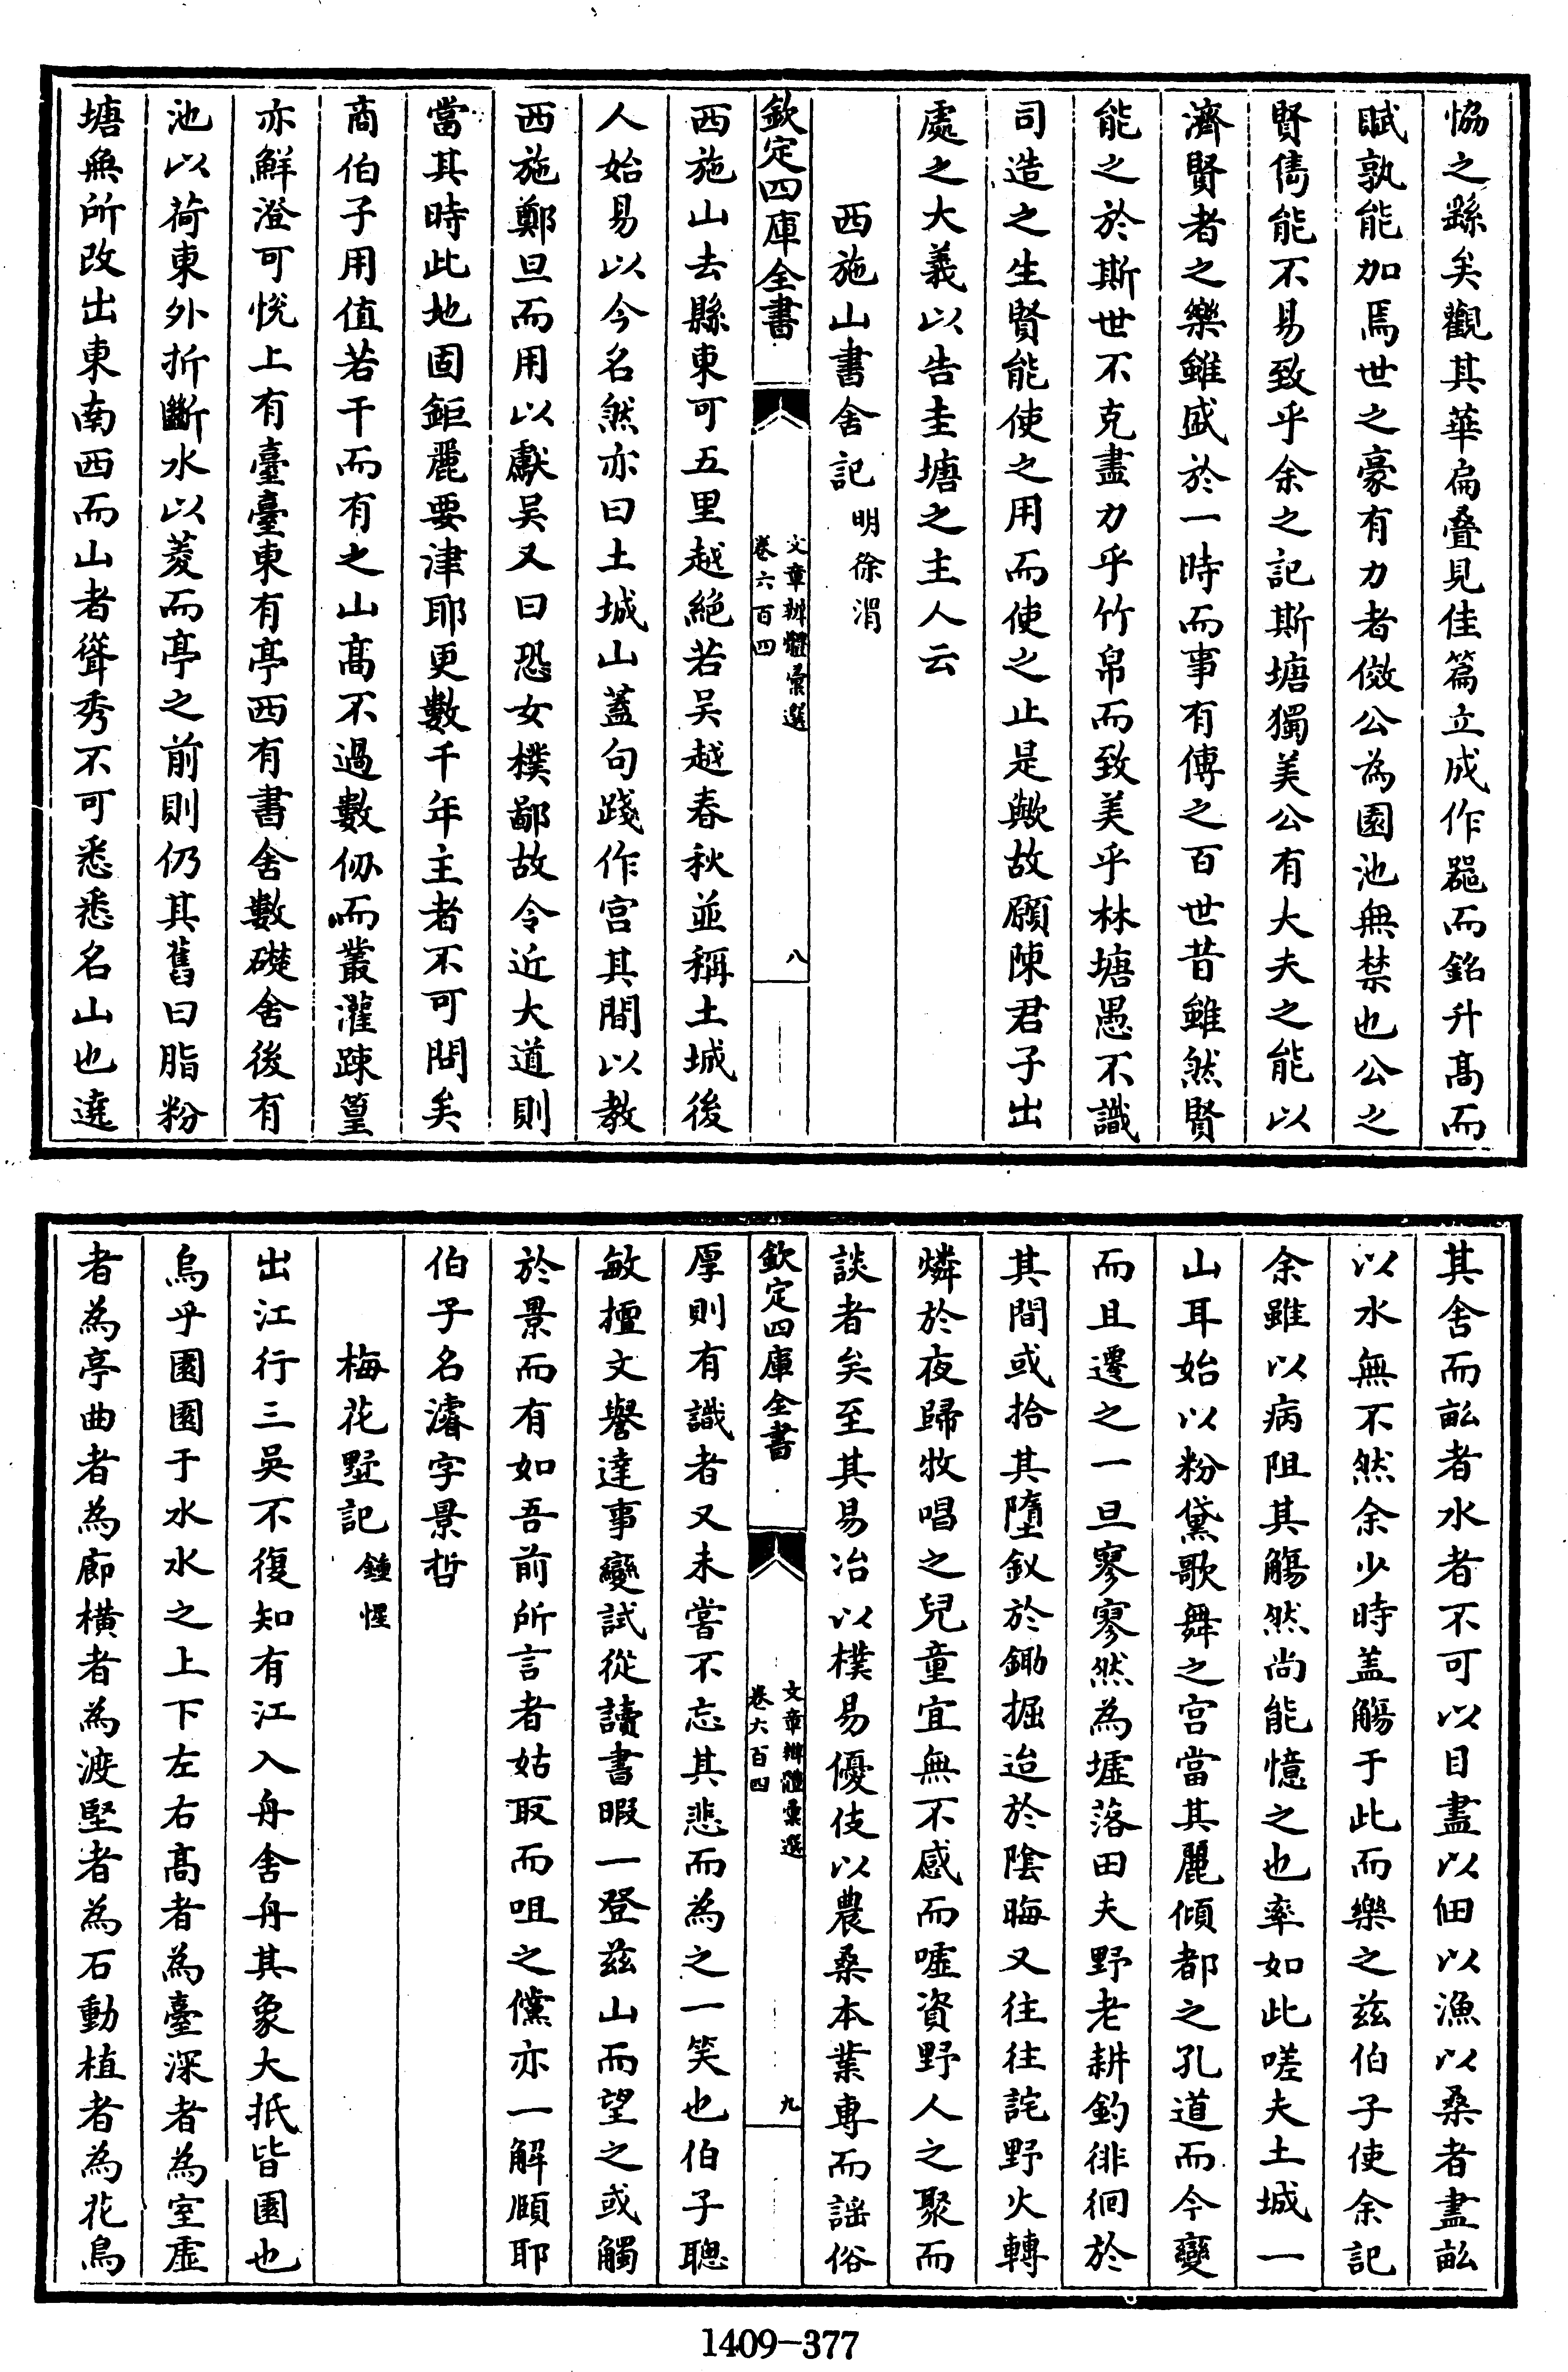 恊之繇矣觀其華扁叠見佳篇立成作噐而銘升髙而
賦孰能加焉世之豪有力者倣公為園池無禁也公之
賢雋能不易致乎余之記斯塘獨美公有大夫之能以
濟賢者之樂雖盛於一時而事有傳之百世昔雖然賢
能之於斯世不克盡力乎竹帛而致美乎林塘愚不識
司造之生賢能使之用而使之止是歟故願陳君子出
處之大義以告圭塘之主人云
西施山書舍記 明徐渭
欽定四庫全書
文章辨體彚選
卷六百四
八
西施山去縣東可五里越絶若吴越春秋並稱土城後
人始易以今名然亦曰土城山蓋句踐作宫其間以教
西施鄭旦而用以獻吴又曰恐女樸鄙故令近大道則
當其時此地固鉅麗要津耶更數千年主者不可問矣
商伯子用值若干而有之山髙不過數仞而叢灌踈篁
亦鮮澄可悅上有臺臺東有亭西有書舍數礎舍後有
池以荷東外折斷水以菱而亭之前則仍其舊曰脂粉
塘無所改出東南西而山者聳秀不可悉悉名山也遶
其舍而畆者水者不可以目盡以佃以漁以桑者盡畆
以水無不然余少時盖觴于此而樂之兹伯子使余記
余雖以病阻其觴然尚能憶之也率如此嗟夫土城一
山耳始以粉黛歌舞之宫當其麗傾都之孔道而今變
而且遷之一旦寥寥然為墟落田夫野老耕釣徘徊於
其間或拾其墮釵於鋤掘迨於陰晦又往往詫野火轉
燐於夜歸牧唱之兒童宜無不感而噓資野人之聚而
談者矣至其易冶以樸易優伎以農桑本業專而謡俗
欽定四庫全書
文章辨體彚選
卷六百四
九
厚則有識者又未嘗不忘其悲而為之一笑也伯子聰
敏擅文譽達事變試從讀書暇一登兹山而望之或觸
於景而有如吾前所言者姑取而咀之儻亦一解頤耶
伯子名濬字景哲
梅花墅記 鍾惺
出江行三吴不復知有江入舟舍舟其象大抵皆園也
烏乎園園于水水之上下左右髙者為臺深者為室虛
者為亭曲者為廊横者為渡竪者為石動植者為花鳥
1409-377